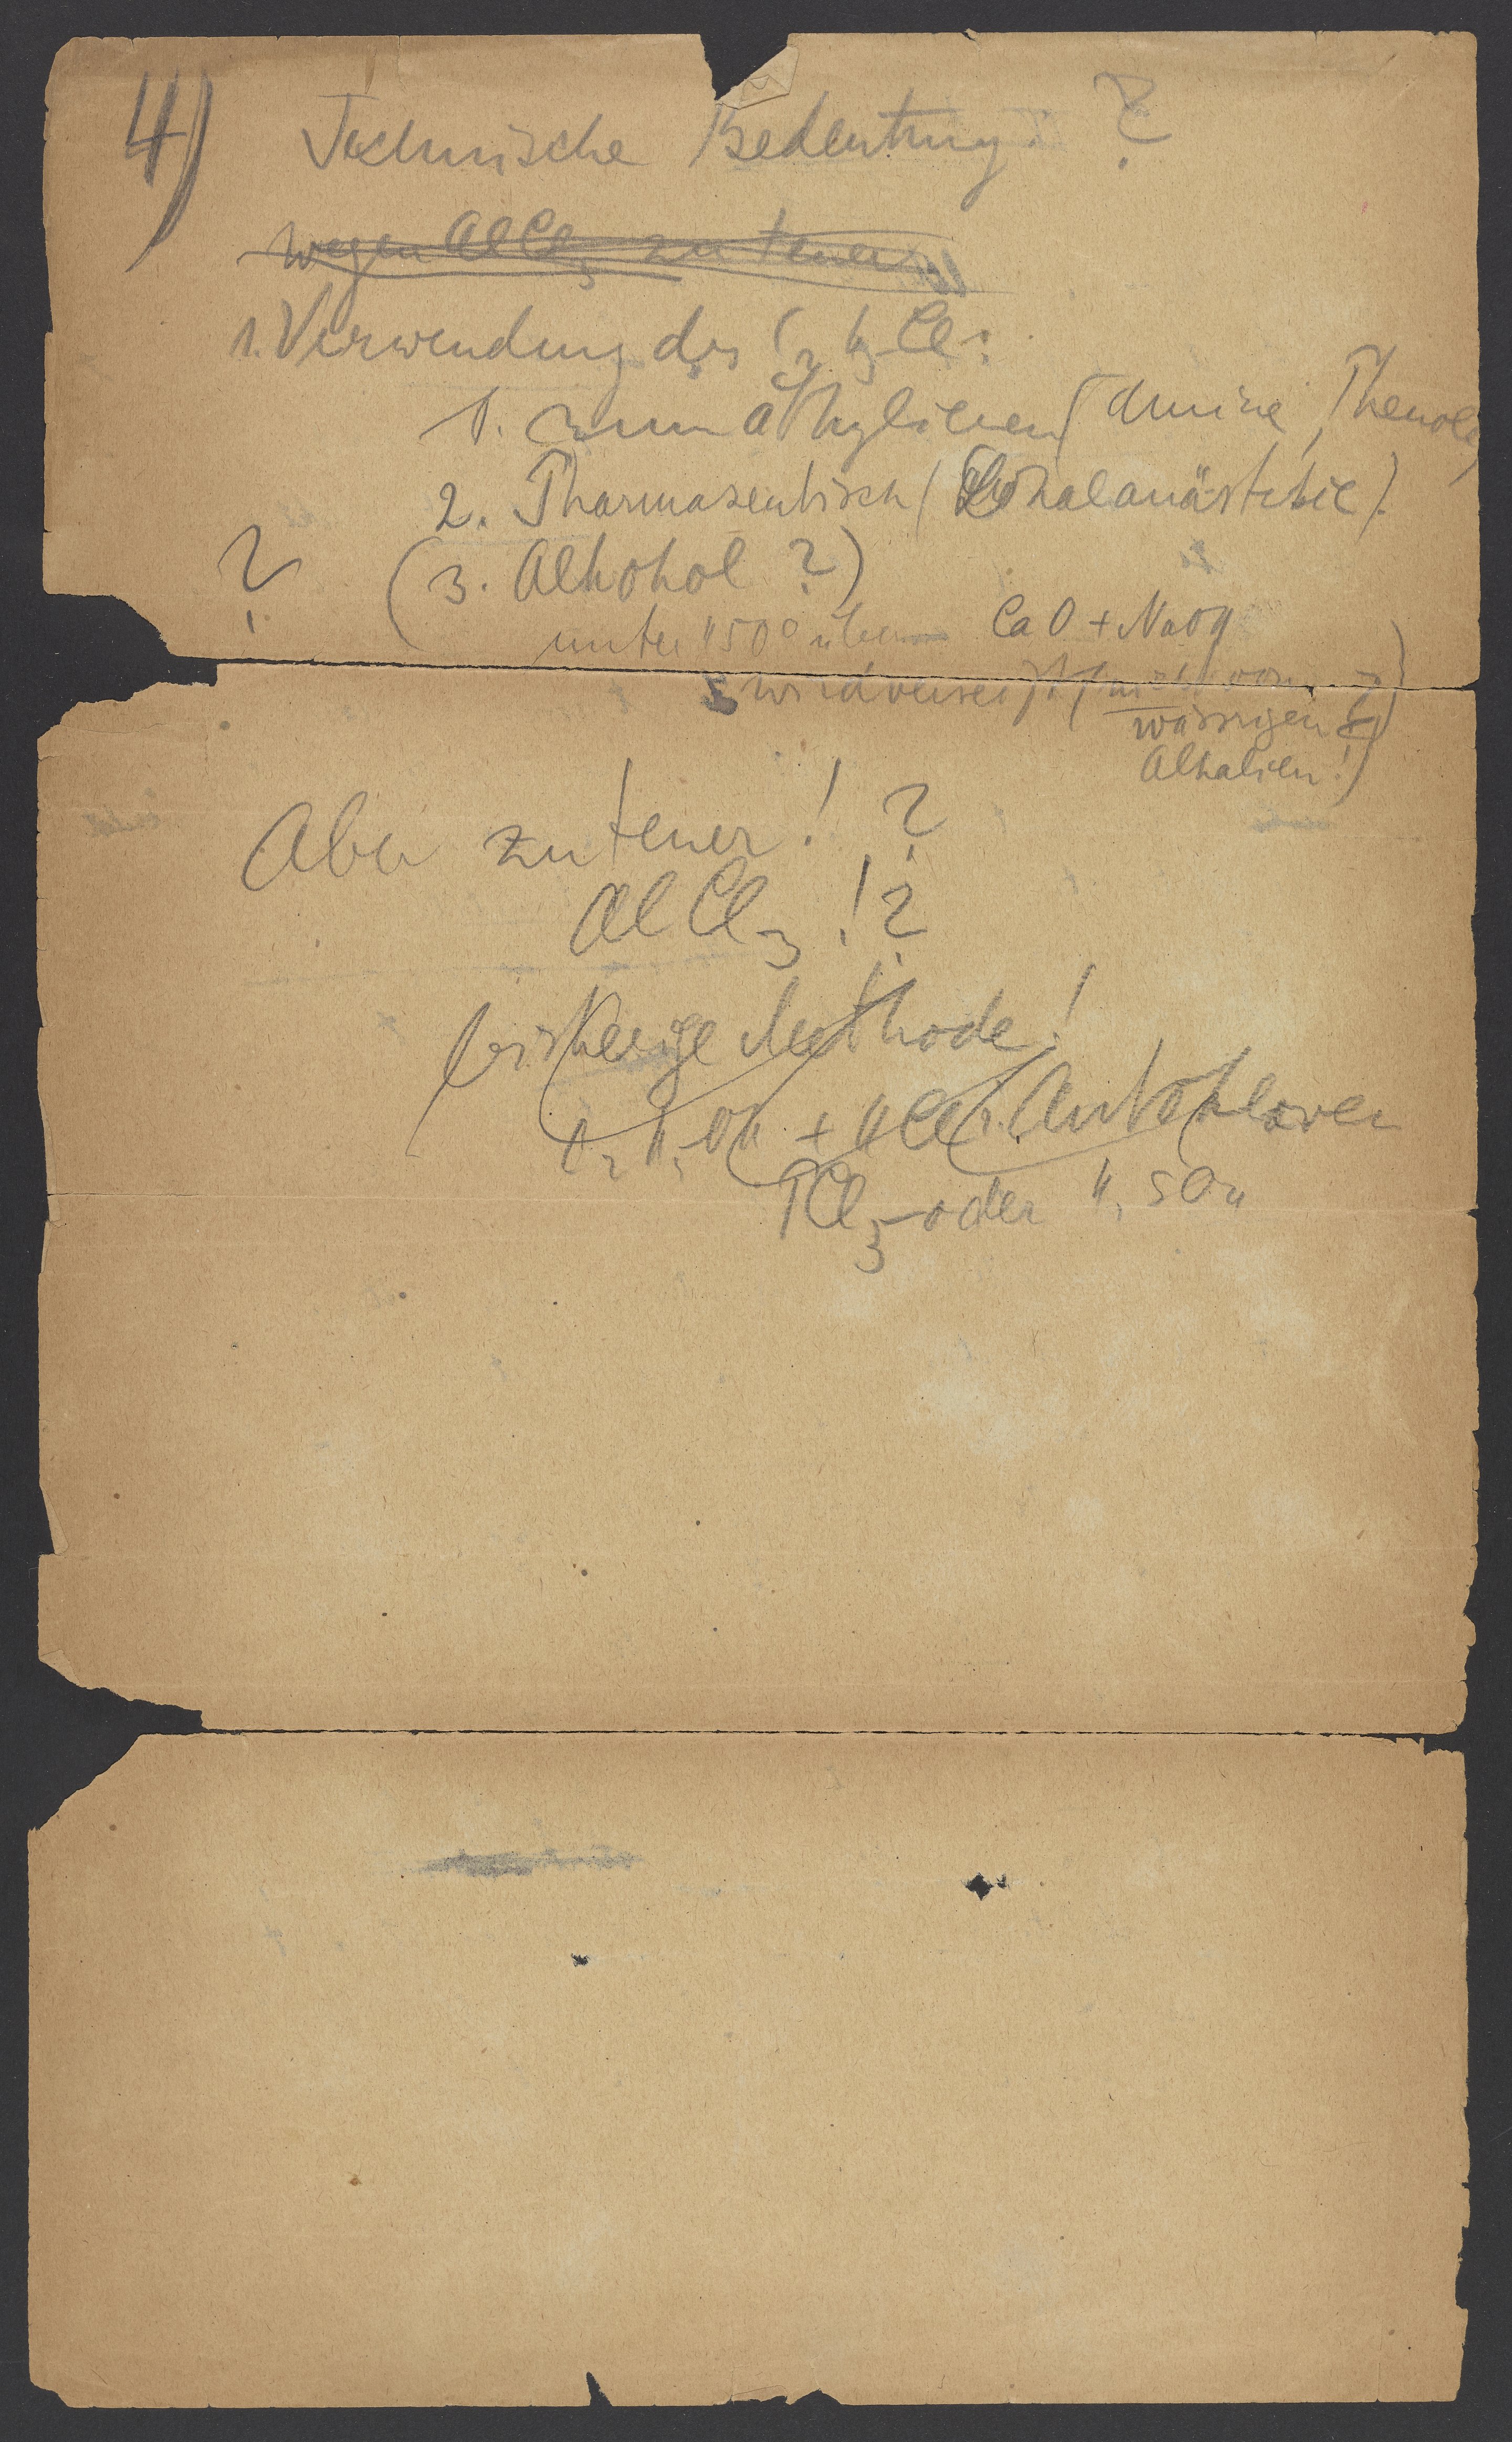 4) Technische Bedeutung ?
wegen AlCl3 zu teuer
1. Verwendung des C2H5Cl:
1. zum äthylieren (Amine, Phenole)
2. Pharmazeutisch (Lokalanästhesie).
? (3. Alkohol ?)
unter 150° über CaO + NaOH
wird verseift (nicht von
wässrigen
Alkalien!)
Aber zu teuer! ?
AlCl3 !?
bisherige Methode!
C2H5OH + HCl i. Autoklaven
PCl3 oder H2SO4